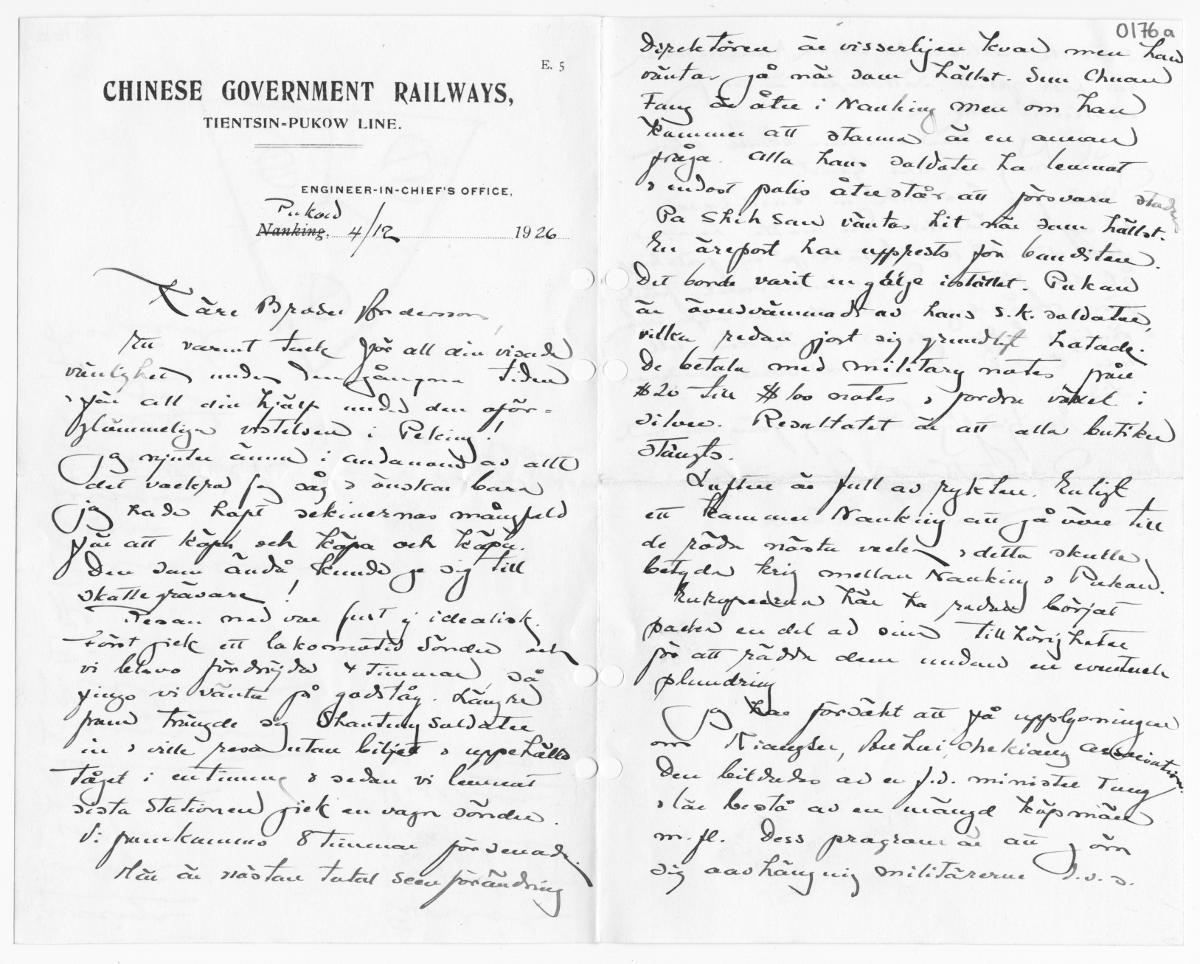 0176 a
E. 5
CHINESE GOVERNMENT RAILWAYS,
TIENTSIN-PUKOW LINE.
ENGINEER-IN-CHIEF'S OFFICE,
Pukow
Nanking, 4/12 1926
Käre Broder Andersson,
Ett varmt tack för all din visade
vänlighet under den gångna tiden
& för all din hjälp under den oför-
glömmeliga vistelsen i Peking!
Jag njuter ännu i andanom av allt
det vackra jag såg & önskar bara
jag hade haft sekinernas mångfald
för att köpa och köpa och köpa.
Den som ändå kunde ge sig till
skattegrävare!
Resan ned var just ej idealisk.
Först gick ett lokomotiv sönder och
vi blevo fördröjda 4 timmar så
fingo vi vänta på godståg. Längre
fram trängde sig Shantung soldater
in & ville resa utan biljett & uppehöllo
tåget i en timme & sedan vi lemnat
sista stationen gick en vagn sönder.
Vi framkommo 8 timmar försenade.
Här är nästan total scenförändring
Direktören är visserligen kvar men han
väntar gå när som hälst. Sun Chuan
Fang är åter i Nanking men om han
kommer att stanna är en annan
fråga. Alla hans soldater ha lemnat
& endast polis återstår att försvara staden
Pa Shih San väntas hit när som hälst.
En äreport har uppresets för banditen.
Det borde varit en galge istället. Pukow
är översvämmadt av hans s.k. soldater,
vilka redan gjort sig grundligt hatade.
De betala med military notes från
$20 till $100 notes & fordra växel i
silver. Resultatet är att alla butiker
stängts.
Luften är full av rykten. Enligt
ett kommer Nanking att gå över till
de röda nästa vecka & detta skulle
betyda krig mellan Nanking & Pukow.
Européerna här ha redan börjat
packa en del av sina tillhörigheter
för att rädda dem undan en eventuell
plundring
Jag har försökt att få upplysningar
om Kiangsu, Anhui, Chekiang Association.
Den bildades av en f.d. minister Tung
& lär bestå av en mängd köpmän
m.fl. Dess program är att göra
sig oavhängig militärerna d.v.s.